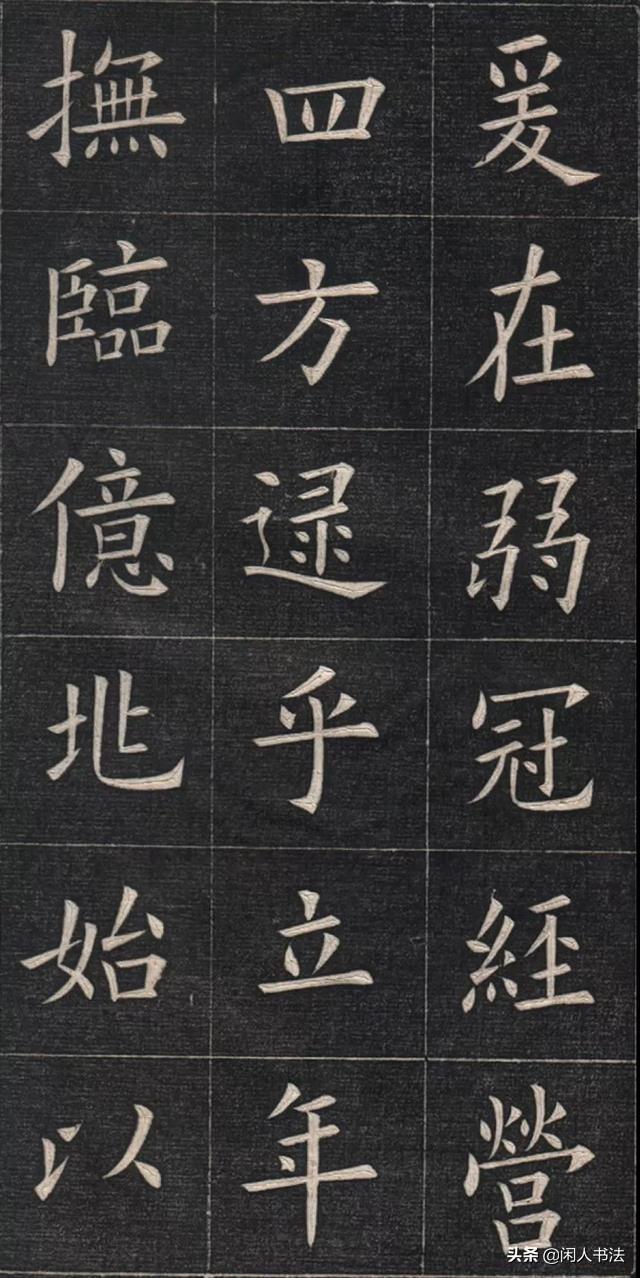 爰在弱冠經營
四方逯乎立年
撫臨億兆始以
头条 @闲人书法